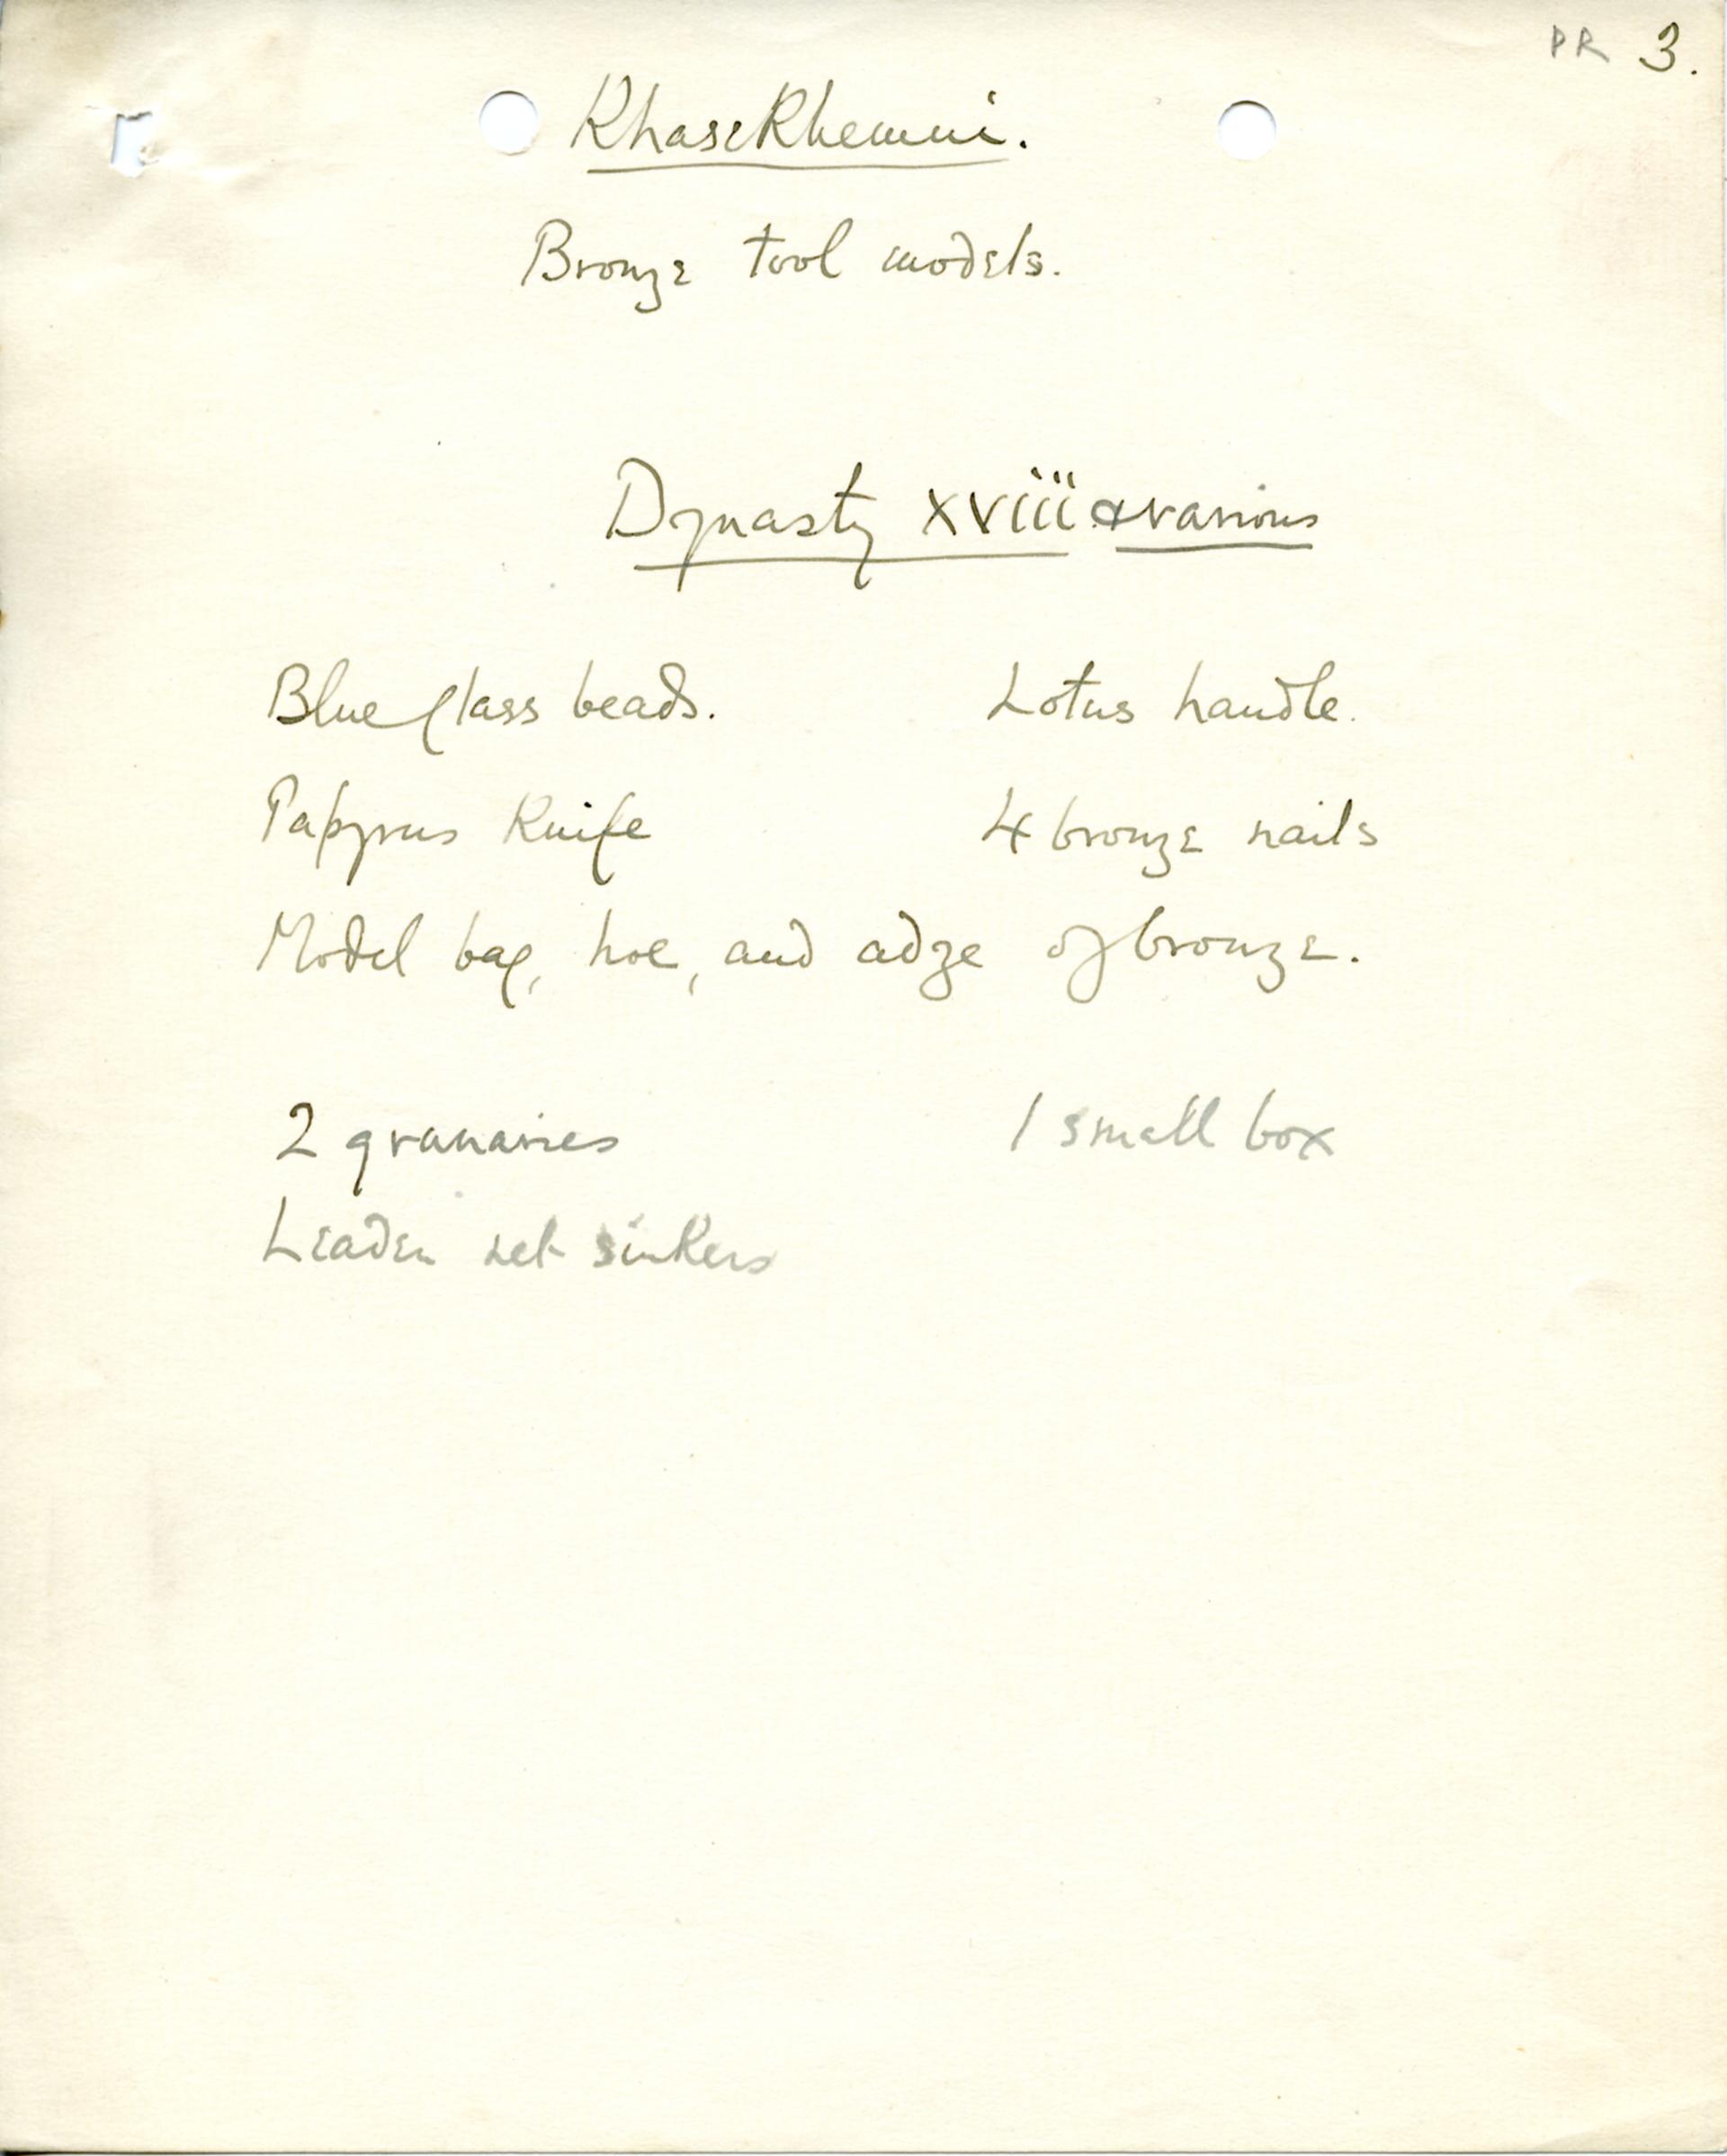 PR 3.
Khasekhemui.
Bronze tool models.
Dynasty XVIII & various
Blue glass beads. Lotus handle.
Papyrus Knife 4 bronze nails
Model bag, hoe, and adze of bronze.
2 granaries 1 small box
Leaden net sinkers